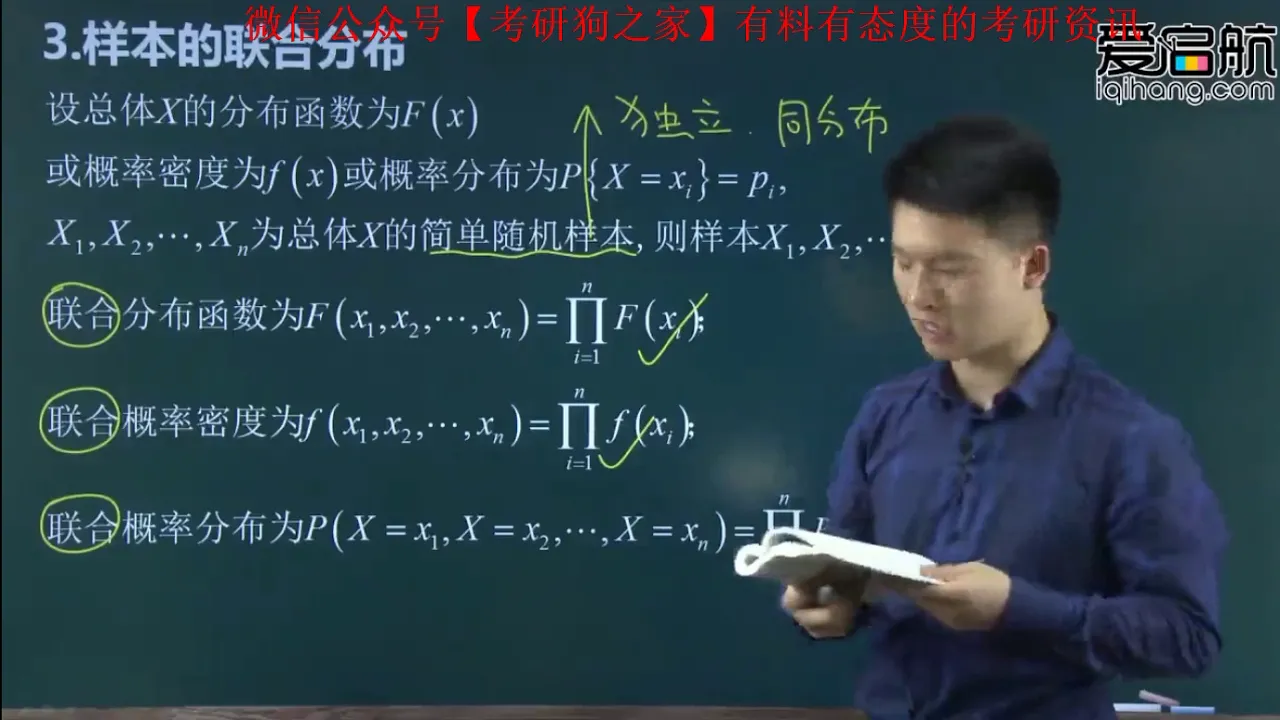 微信公众号【考研狗之家】有料有态度的考研资讯
爱启航
iqihang.com
3.样本的联合分布
设总体X的分布函数为F(x)
独立. 同分布
或概率密度为f(x)或概率分布为P{X=x_i}=p_i,
X_1,X_2,⋯,X_n为总体X的简单随机样本,则样本X_1,X_2,⋯
联合分布函数为F(x_1,x_2,⋯,x_n)=∏_{i=1}^{n}F(x_i);
联合概率密度为f(x_1,x_2,⋯,x_n)=∏_{i=1}^{n}f(x_i);
联合概率分布为P(X=x_1,X=x_2,⋯,X=x_n)=∏^{n}